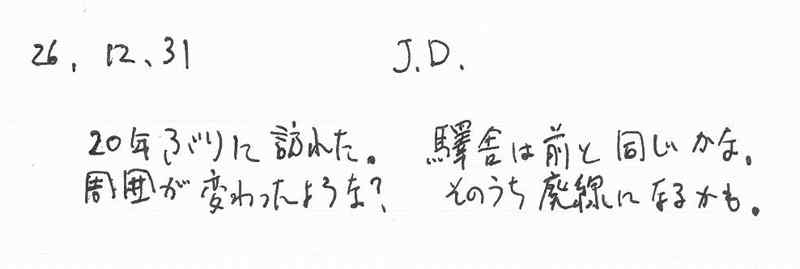 26. 12、31 J.D.
20年ぶりに訪れた。 驛舎は前と同じかな。
周囲が変わったような? そのうち廃線になるかも。